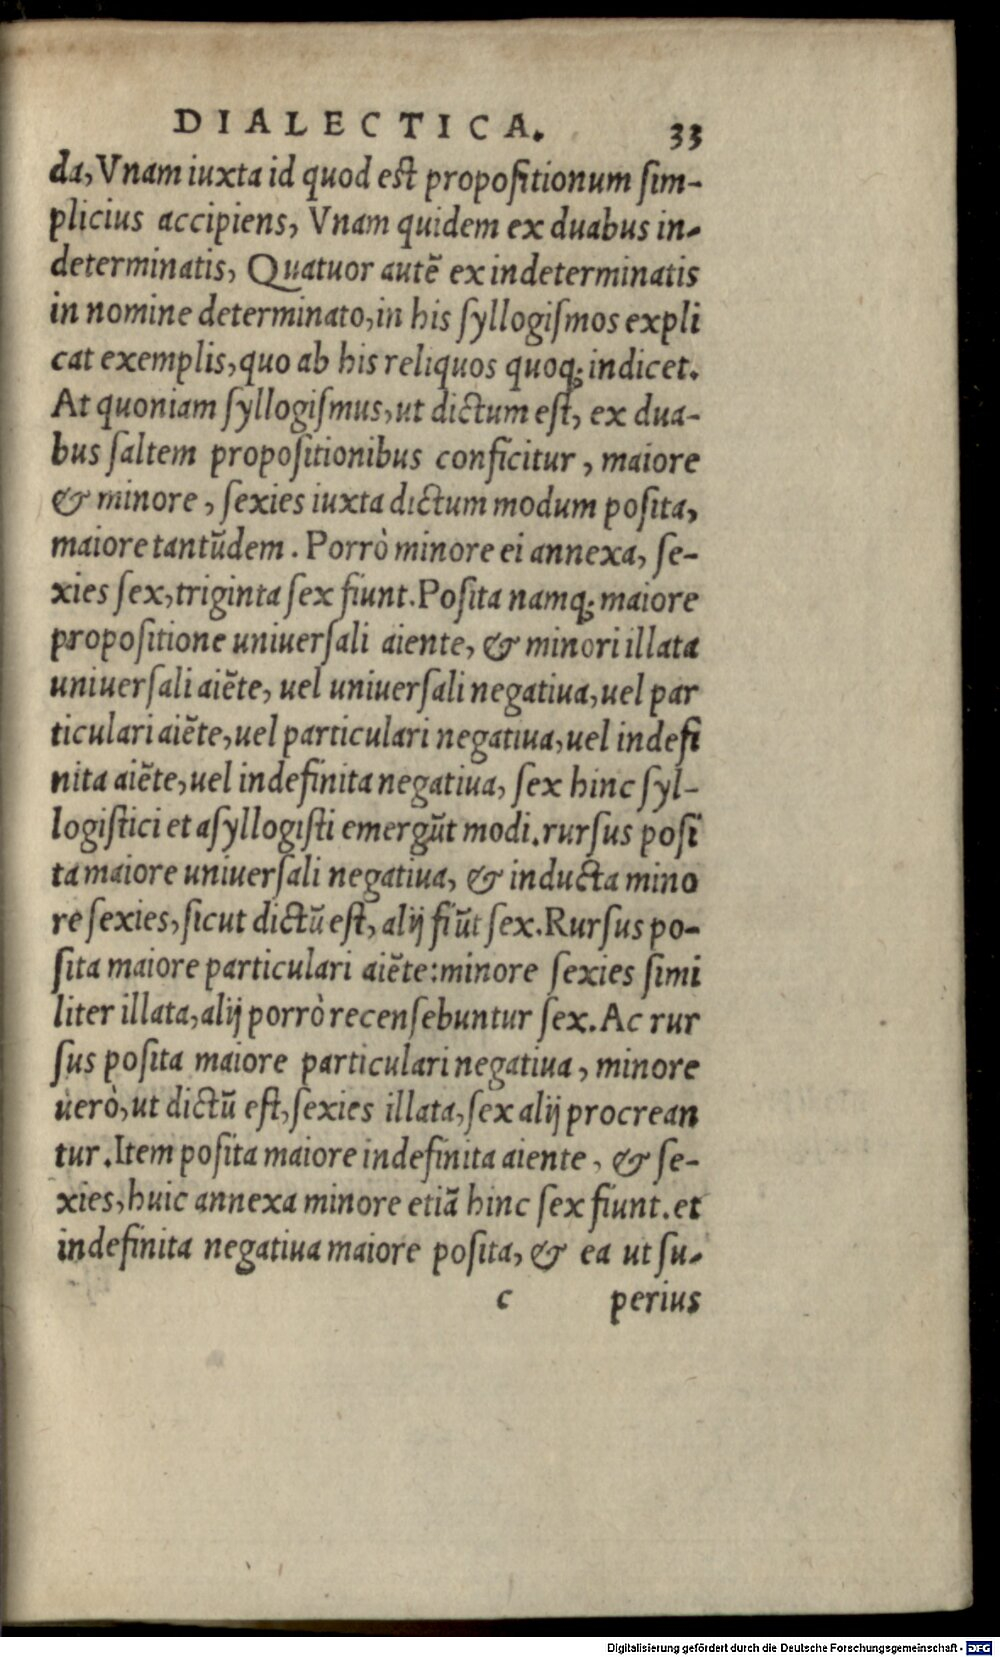 DIALECTICA. 33
da, Vnam iuxta id quod est propoſitionum ſim-
plicius accipiens, Vnam quidem ex duabus in-
determinatis, Quatuor autẽ ex indeterminatis
in nomine determinato, in his ſyllogiſmos expli
cat exemplis, quo ab his reliquos quoq; indicet.
At quoniam ſyllogiſmus, ut dictum eſt, ex dua-
bus ſaltem propoſitionibus conficitur, maiore
& minore, ſexies iuxta dictum modum poſita,
maiore tantũdem. Porrò minore ei annexa, ſe-
xies ſex, triginta ſex fiunt. Poſita namq; maiore
propoſitione uniuerſali aiente, & minori illata
uniuerſali aiẽte, uel uniuerſali negatiua, uel par
ticulari aiẽte, uel particulari negatiua, uel indefi
nita aiẽte, uel indefinita negatiua, ſex hinc ſyl-
logiſtici et aſyllogiſti emergũt modi. rurſus poſi
ta maiore uniuerſali negatiua, & inducta mino
re ſexies, ſicut dictũ eſt, alij fiũt ſex. Rurſus po-
ſita maiore particulari aiẽte: minore ſexies ſimi
liter illata, alij porrò recenſebuntur ſex. Ac rur
ſus poſita maiore particulari negatiua, minore
uerò, ut dictũ eſt, ſexies illata, ſex alij procrean
tur. Item poſita maiore indefinita aiente, & ſe-
xies, huic annexa minore etiã hinc ſex fiunt. et
indefinita negatiua maiore poſita, & ea ut ſu-
c perius
Digitalisierung gefördert durch die Deutsche Forschungsgemeinschaft - DFG